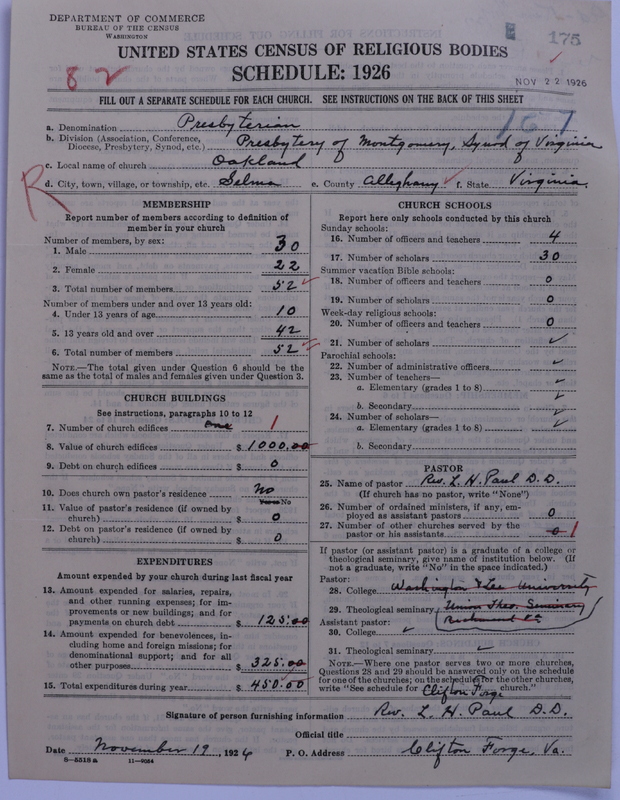 DEPARTMENT OF COMMERCE
BUREAU OF THE CENSUS
WASHINGTON
175
UNITED STATES CENSUS OF RELIGIOUS BODIES
SCHEDULE: 1926
82
NOV 22 1926
FILL OUT A SEPARATE SCHEDULE FOR EACH CHURCH. SEE INSTRUCTIONS ON THE BACK OF THIS SHEET
167
a. Denomination Presbyterian
b. Division (Association, Conference, Diocese, Presbytery, Synod, etc.) Presbytery of Montgomery, Synod of Virginia
c. Local name of church Oakland
R
d. City, town, village, or township, etc. Selma e. County Alleghany f. State Virginia
MEMBERSHIP
Report number of members according to definition of
member in your church
Number of members, by sex:
1. Male 30
2. Female 22
3. Total number of members 52
Number of members under and over 13 years old:
4. Under 13 years of age 10
5. 13 years old and over 42
6. Total number of members 52
NOTE.—The total given under Question 6 should be
same as the total of males and females given under Question 3.
CHURCH BUILDINGS
See instructions, paragraphs 10 to 12
7. Number of church edifices one 1
8. Value of church edifices $ 1000.00
9. Debt on church edifices $ 0
10. Does church own pastor's residence No
Yes or No
11. Value of pastor's residence (if owned by
church) $ 0
12. Debt on pastor's residence (if owned by
church) $ 0
EXPENDITURES
Amount expended by your church during last fiscal year
13. Amount expended for salaries, repairs,
and other running expenses; for im-
provements or new buildings; and for
payments on church debt $ 125.00
14. Amount expended for benevolences, in-
cluding home and foreign missions; for
denominational support; and for all
other purposes $ 325.00
15. Total expenditures during year $ 450.00
CHURCH SCHOOLS
Report here only schools conducted by this church
Sunday schools:
16. Number of officers and teachers 4
17. Number of scholars 30
Summer vacation Bible schools:
18. Number of officers and teachers 0
19. Number of scholars 0
Week-day religious schools:
20. Number of officers and teachers 0
21. Number of scholars
Parochial schools:
22. Number of administrative officers
23. Number of teachers—
a. Elementary (grades 1 to 8)
b. Secondary
24. Number of scholars—
a. Elementary (grades 1 to 8)
b. Secondary
PASTOR
25. Name of pastor Rev. L. H. Paul D.D.
(If church has no pastor, write "None")
26. Number of ordained ministers, if any, em-
ployed as assistant pastors 0
27. Number of other churches served by the
pastor or his assistants 0 1
If pastor (or assistant pastor) is a graduate of a college or
theological seminary, give name of institution below. (If
not a graduate, write "No" in the space indicated.)
Pastor:
28. College Washington & Lee University
29. Theological seminary Union Theo. Seminary
Richmond Va
Assistant pastor:
30. College
31. Theological seminary
NOTE.—Where one pastor serves two or more churches,
Questions 28 and 29 should be answered only on the schedule
for one of the churches; on the schedule for the other churches,
write "See schedule for Clifton Forge church."
Signature of person furnishing information Rev. L. H. Paul D.D.
Official title
Date November 19, 1926 P. O. Address Clifton Forge, Va.
8—5518 a 11—9084